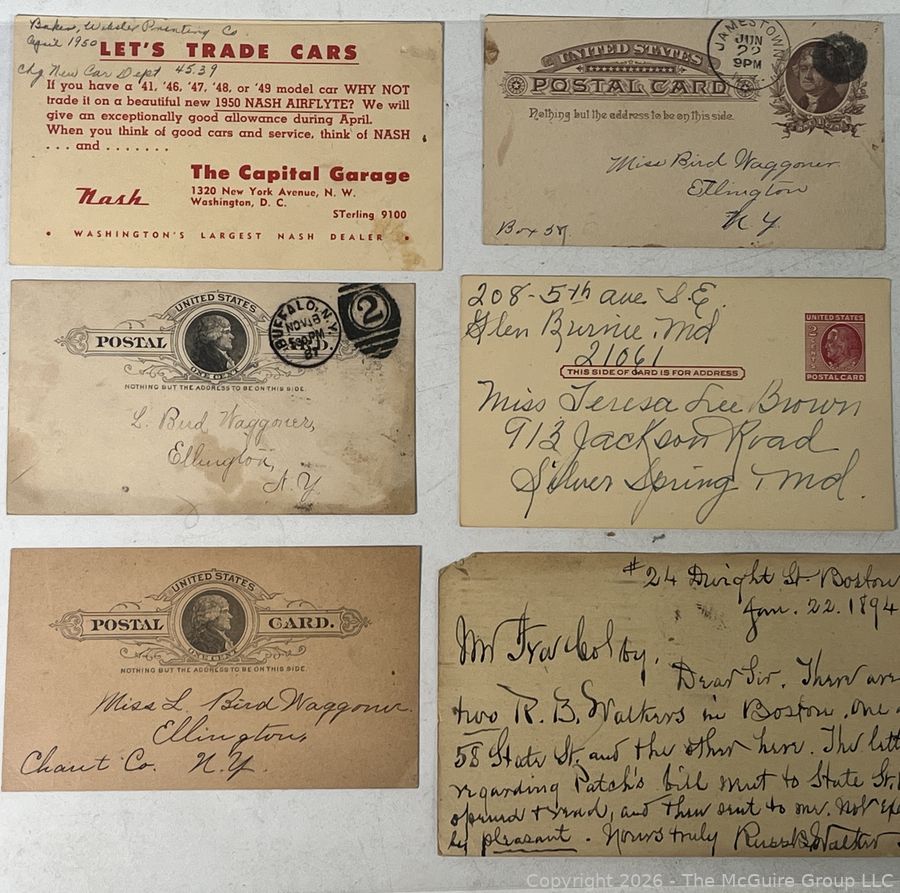 Baker, Webster Printing Co
April 1950
LET'S TRADE CARS
Chg New Car Dept 45.39
If you have a '41, '46, '47, '48, or '49 model car WHY NOT
trade it on a beautiful new 1950 NASH AIRFLYTE? We will
give an exceptionally good allowance during April.
When you think of good cars and service, think of NASH
. . . and . . . . . . .
The Capital Garage
Nash
1320 New York Avenue, N. W.
Washington, D. C.
STerling 9100
• WASHINGTON'S LARGEST NASH DEALER •
JAMESTOWN
JUN
22
9PM
N.Y.
UNITED STATES
POSTAL CARD
Nothing but the address to be on this side.
Miss Bird Waggoner
Ellington
N.Y.
Box 37.
UNITED STATES
POSTAL
ONE CENT
BUFFALO, N.Y.
NOV 8
530PM
87
2
NOTHING BUT THE ADDRESS TO BE ON THIS SIDE.
L. Bird Waggoner,
Ellington,
N.Y.
208-5th ave S.E.
Glen Burnie, Md
21061
THIS SIDE OF CARD IS FOR ADDRESS
UNITED STATES
2 CENTS
POSTAL CARD
Miss Teresa Lee Brown
913 Jackson Road
Silver Spring, Md.
UNITED STATES
POSTAL CARD.
ONE CENT
NOTHING BUT THE ADDRESS TO BE ON THIS SIDE.
Miss L. Bird Waggoner.
Ellington,
Chaut Co. N.Y.
#24 Dwight St. Boston
Jan. 22. 1894
Mr Ira Colby.
Dear Sir. There are
two R. B. Walkers in Boston, one
58 State St. and the other here. The lett
regarding Patch's bill went to State St.
opened & read, and then sent to me. Not
by pleasant. Yours truly Russ B. Walker
Copyright 2026 - The McGuire Group LLC